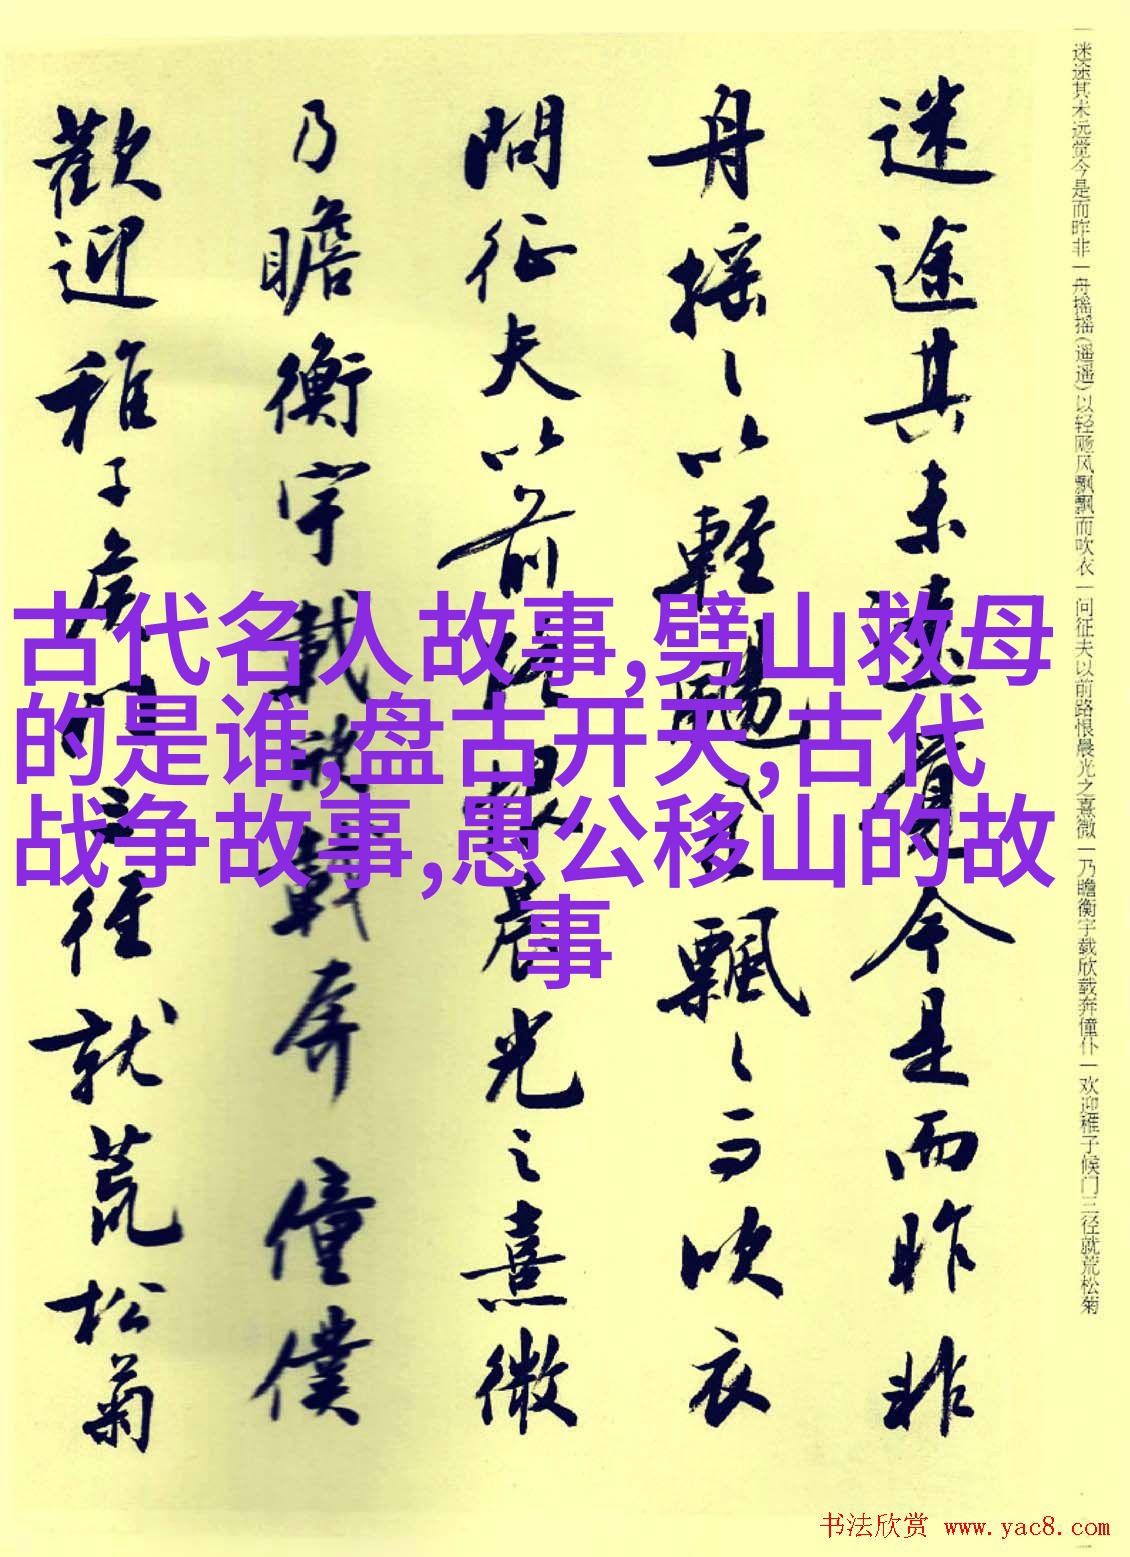 一迷途其未远觉今是而昨非一舟摇摇(遥遥)以轻飏风飘飘而吹衣一问征夫以前路恨晨光之熹微一乃瞻衡宇载欣载奔僮仆一欢迎稚子候门三径就荒松菊
迷途其未遠覺今是而昨非
舟摇〻以輕颺風飄〻而吹衣
問征夫以前路恨晨光之熹微
乃瞻衡宇載欣載奔僮僕
歡迎稚子候門三徑就荒松菊
古代名人故事,劈山救母
的是谁,盘古开天,古代
战争故事,愚公移山的故
事
书法欣赏 www.yac8.com